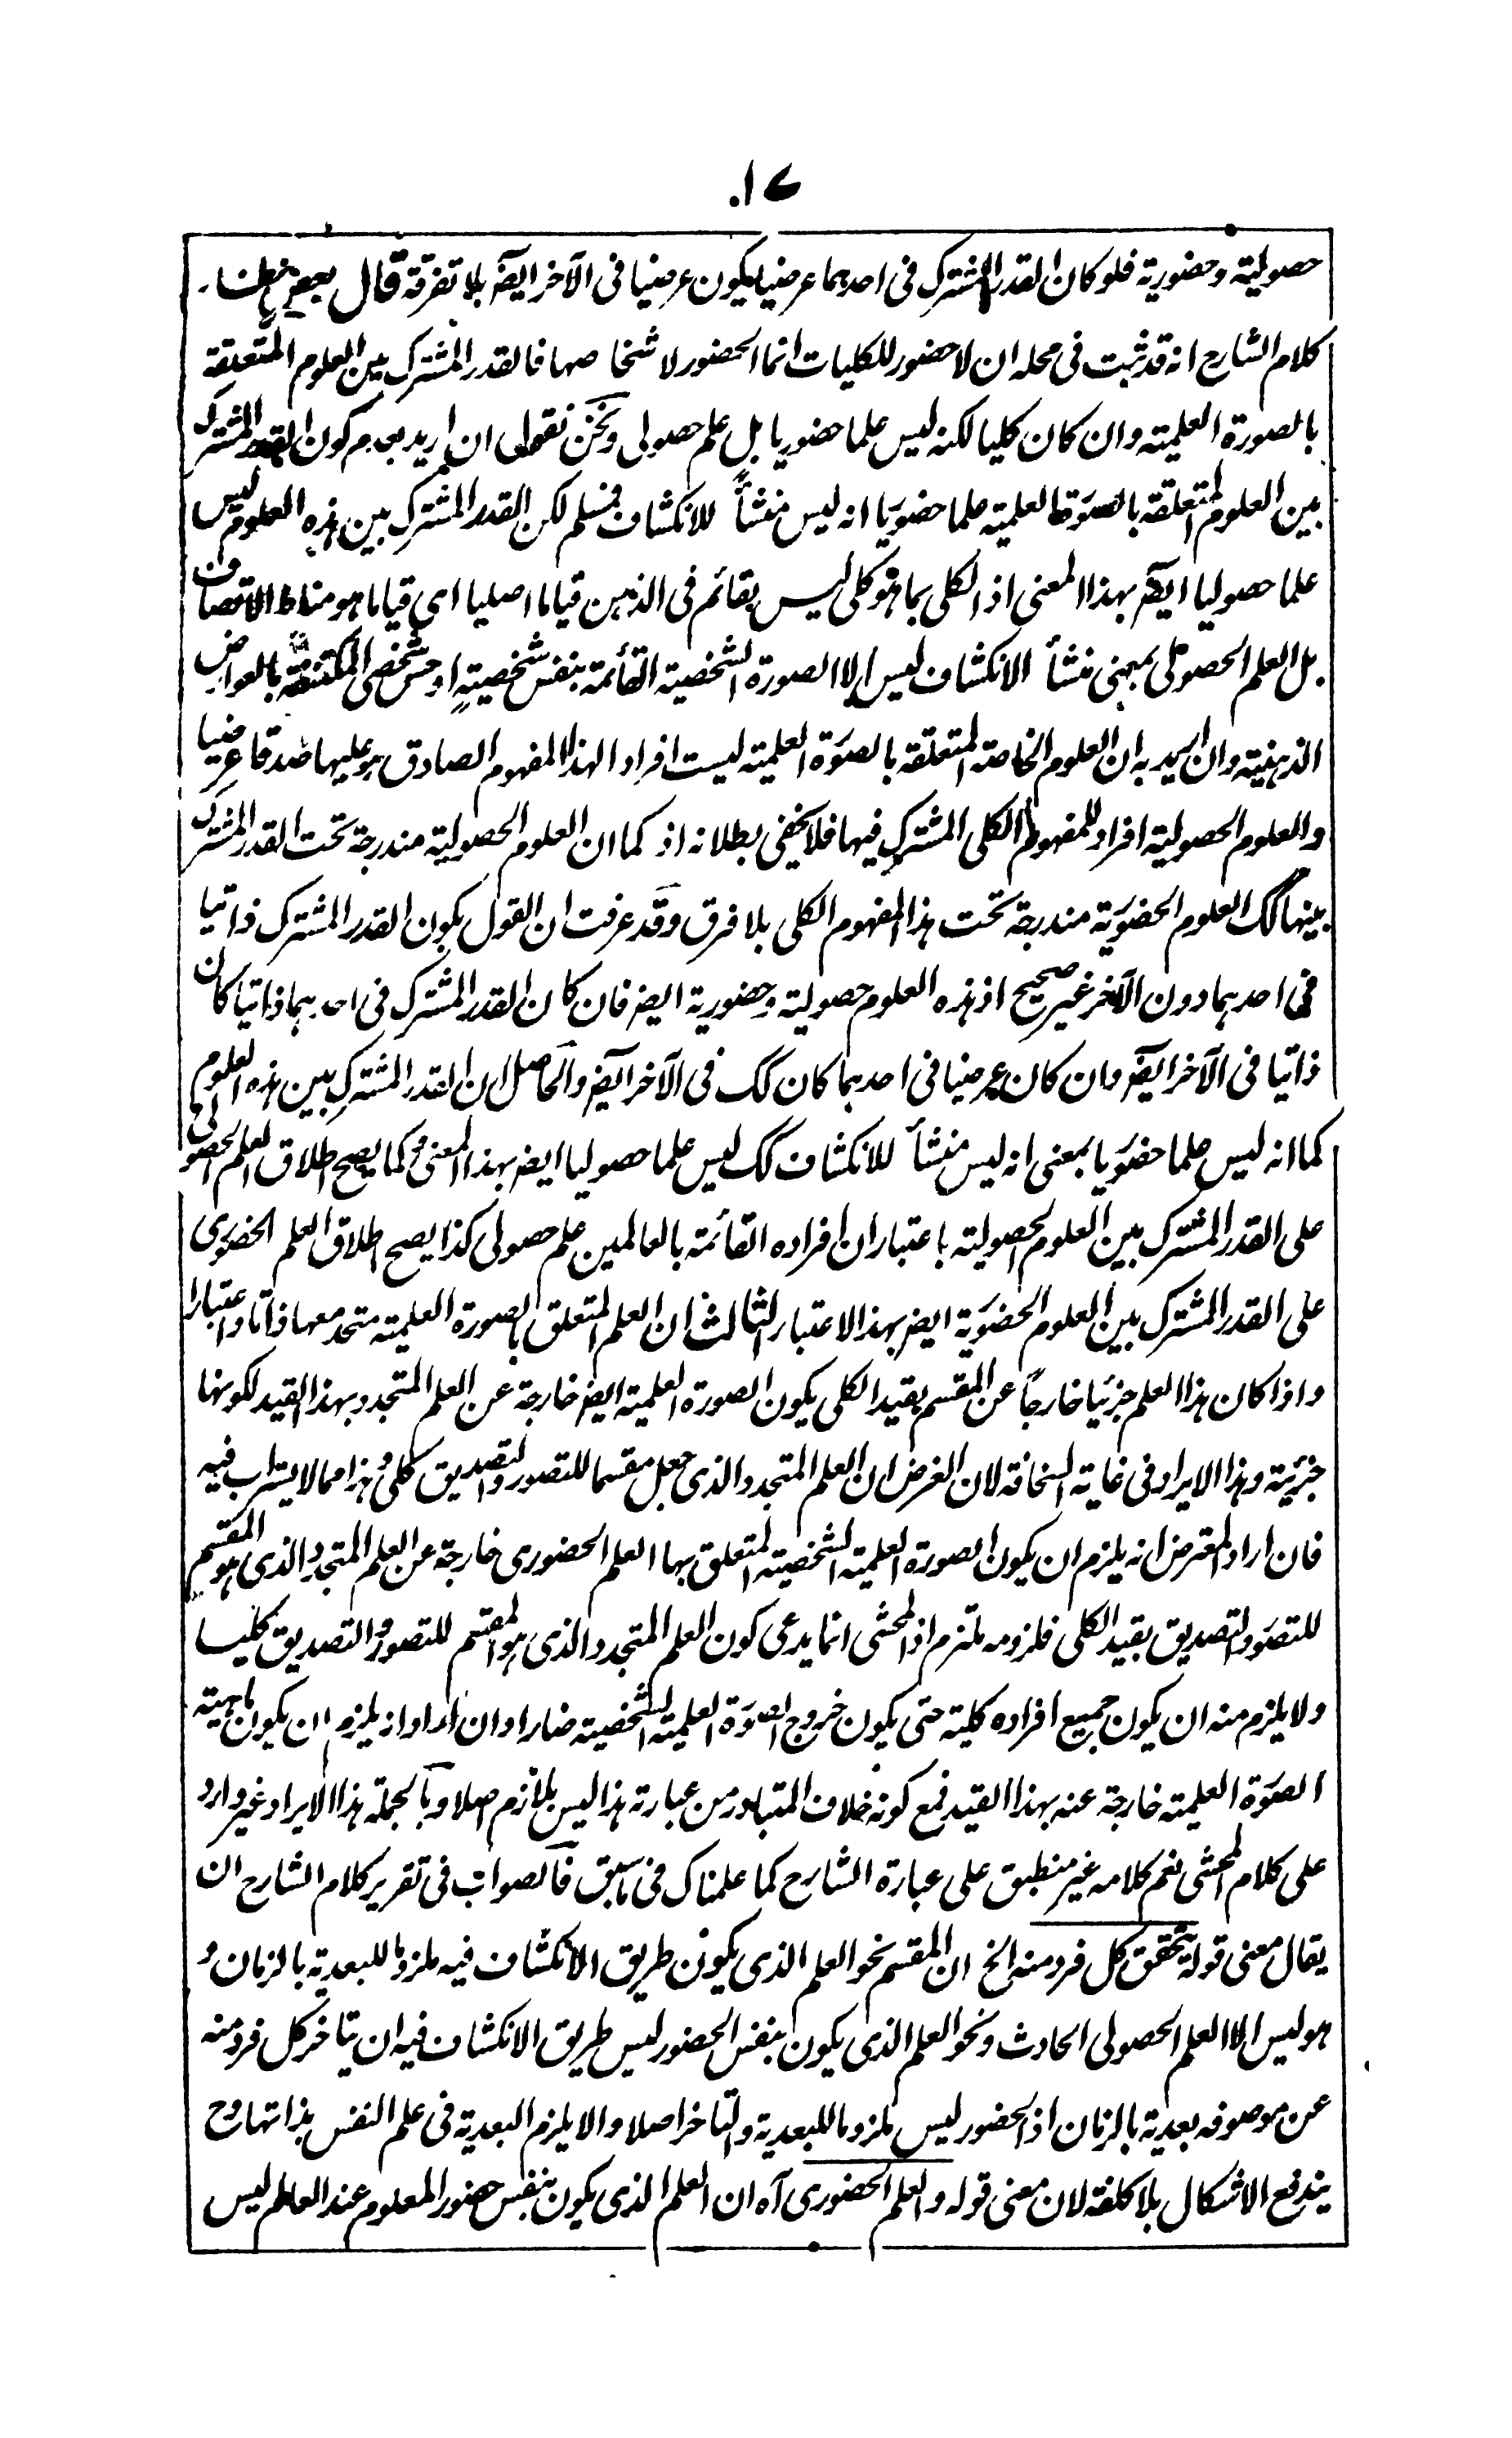 ١٧
حصولية وحضورية فلو كان القدر المشترك فى احدهما عرضيا يكون عرضيا فى الآخر ايضا بلا تفرقة قال بعض
كلام الشارح انه قد ثبت فى محله ان لا حضور للكليات انما الحضور لاشخاصها فالقدر المشترك بين العلوم المتعلقة
بالصورة العلمية وان كان كليا لكنه ليس علما حضوريا بل علم حصولى ونحن نقول ان اريد بعدم كون القدر المشترك
بين العلوم المتعلقة بالصورة العلمية علما حضوريا انه ليس منشأً للانكشاف فمسلم لكن القدر المشترك بين هذه العلوم ليس
علما حصوليا ايضا بهذا المعنى اذ الكلى بما هو كلى ليس بقائم فى الذهن قياما اصليا اى قياما هو مناط الاتصاف
بل العلم الحصولى بمعنى منشأ الانكشاف ليس الا الصورة الشخصية القائمة بنفس شخصية او حس شخصى المكتنفة بالعوارض
الذهنية وان اريد به ان العلوم الخاصة المتعلقة بالصورة العلمية ليست افرادا لهذا المفهوم الصادق هو عليها صدقا عرضيا
والعلوم الحصولية افراد للمفهوم الكلى المشترك فيها فلا يخفى بطلانه اذ كما ان العلوم الحصولية مندرجة تحت القدر المشترك
بينها كك العلوم الحضورية مندرجة تحت هذا المفهوم الكلى بلا فرق وقد عرفت ان القول بكون القدر المشترك ذاتيا
فى احدهما دون الآخر غير صحيح اذ هذه العلوم حصولية وحضورية ايضا فان كان القدر المشترك فى احدهما ذاتيا كان
ذاتيا فى الآخر ايضا وان كان عرضيا فى احدهما كان كك فى الآخر ايضا والحاصل ان القدر المشترك بين هذه العلوم
كما انه ليس علما حضوريا بمعنى انه ليس منشأ للانكشاف كك ليس علما حصوليا ايضا بهذا المعنى وكما يصح اطلاق العلم الحصولى
على القدر المشترك بين العلوم الحصولية باعتبار ان افراده القائمة بالعالمين علم حصولى كذا يصح اطلاق العلم الحضورى
على القدر المشترك بين العلوم الحضورية ايضا بهذا الاعتبار الثالث ان العلم المتعلق بالصورة العلمية متحد معها ذاتا واعتبارا
واذا كان هذا العلم جزئيا خارجاً عن المقسم بقيد الكلى يكون الصورة العلمية ايضا خارجة عن العلم المتجدد بهذا القيد لكونها
جزئية وهذا الايراد فى غاية السخافة لان الغرض ان العلم المتجدد الذى جعل مقسما للتصور والتصديق كلى وهذا مما لا يستراب فيه
فان اراد المعترض انه يلزم ان يكون الصورة العلمية الشخصية المتعلق بها العلم الحضورى خارجة عن العلم المتجدد الذى هو المقسم
للتصور والتصديق بقيد الكلى فلزومه ملتزم اذ المحشى انما يدعى كون العلم المتجدد الذى هو المقسم للتصور والتصديق كليا
ولا يلزم منه ان يكون جميع افراده كلية حتى يكون خروج الصورة العلمية الشخصية ضارا وان اراد انه يلزم ان يكون ماهية
الصورة العلمية خارجة عنه بهذا القيد فمع كونه خلاف المتبادر من عبارته هذا ليس بلازم اصلا وبالجملة هذا الايراد غير وارد
على كلام المحشى نعم كلامه غير منطبق على عبارة الشارح كما علمناك فى ما سبق فالصواب فى تقرير كلام الشارح ان
يقال معنى قوله تحقق كل فرد منه الخ ان المقسم نحو العلم الذى يكون طريق الانكشاف فيه ملزوما للبعدية بالزمان و
هو ليس الا العلم الحصولى الحادث ونحو العلم الذى يكون بنفس الحضور ليس طريق الانكشاف فيه ان يتاخر كل فرد منه
عن موصوفه بعدية بالزمان اذ الحضور ليس ملزوما للبعدية والتاخر اصلا والا يلزم البعدية فى علم النفس بذاتها وح
يندفع الاشكال بلا كلفة لان معنى قوله والعلم الحضورى آه ان العلم الذى يكون بنفس حضور المعلوم عند العالم ليس